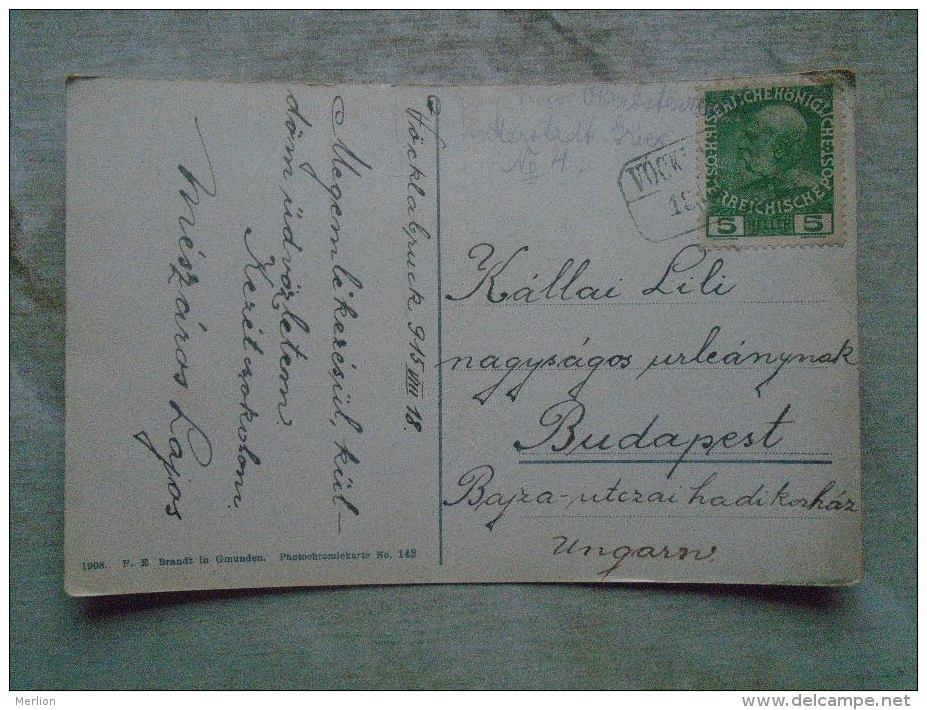 Vöcklabruck 915 VIII 18.
Megemlékezésül, kül-
döm üdvözletem.
Kezét csokolom.
Mészáros Lajos
No 4.
VÖCK
KAISERLICHE KÖNIGLICHE ÖSTERREICHISCHE POST
5 5
Kállai Lili
nagyságos urleánynak
Budapest
Bajza-utczai hadikorház
Ungarn.
1908. F. E. Brandt in Gmunden. Photochromiekarte No. 143
Merlion
www.delcampe.net